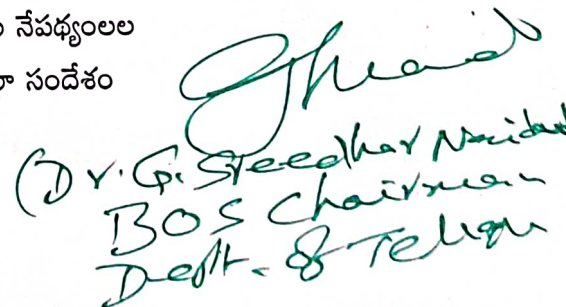 నేపథ్యంలల
సందేశం
(Dr. G. Sreedhar Naidu
BOS Chairman
Dept. of Telugu